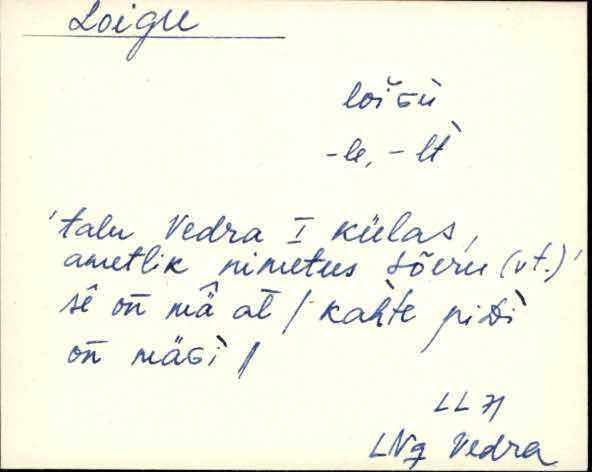 Loigu
loiɢu
-le, -lt
'talu Vedra I külas,
ametlik nimetus Sõeru (vt.)'
sē on̄ mâ at / kahte piᴅi
on̄ mäɢi /
LL 71
LNg Vedra